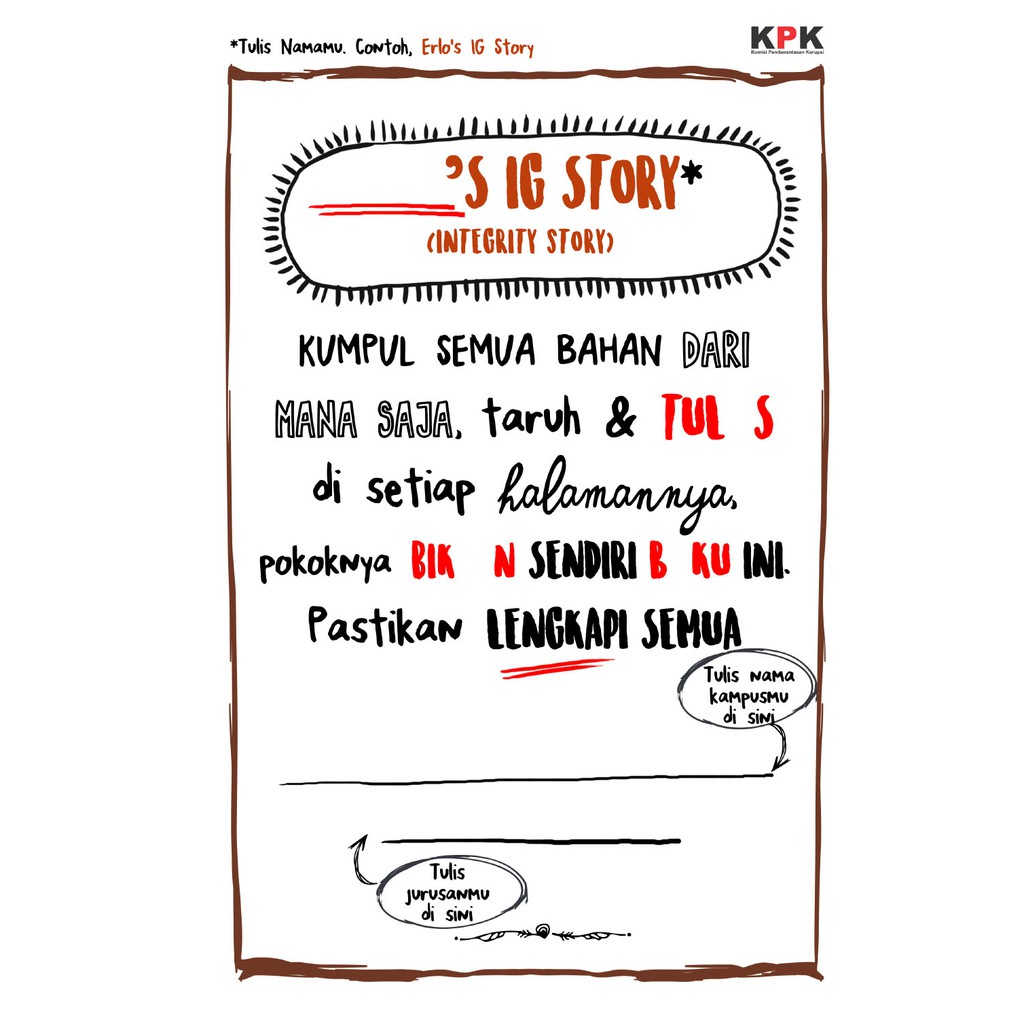 *Tulis Namamu. Contoh, Erlo's IG Story
KPK
Komisi Pemberantasan Korupsi
’S IG STORY*
(INTEGRITY STORY)
KUMPUL SEMUA BAHAN DARI
MANA SAJA, taruh & TUL S
di setiap halamannya,
pokoknya BIK N SENDIRI B KU INI.
Pastikan LENGKAPI SEMUA
Tulis nama
kampusmu
di sini
Tulis
jurusanmu
di sini